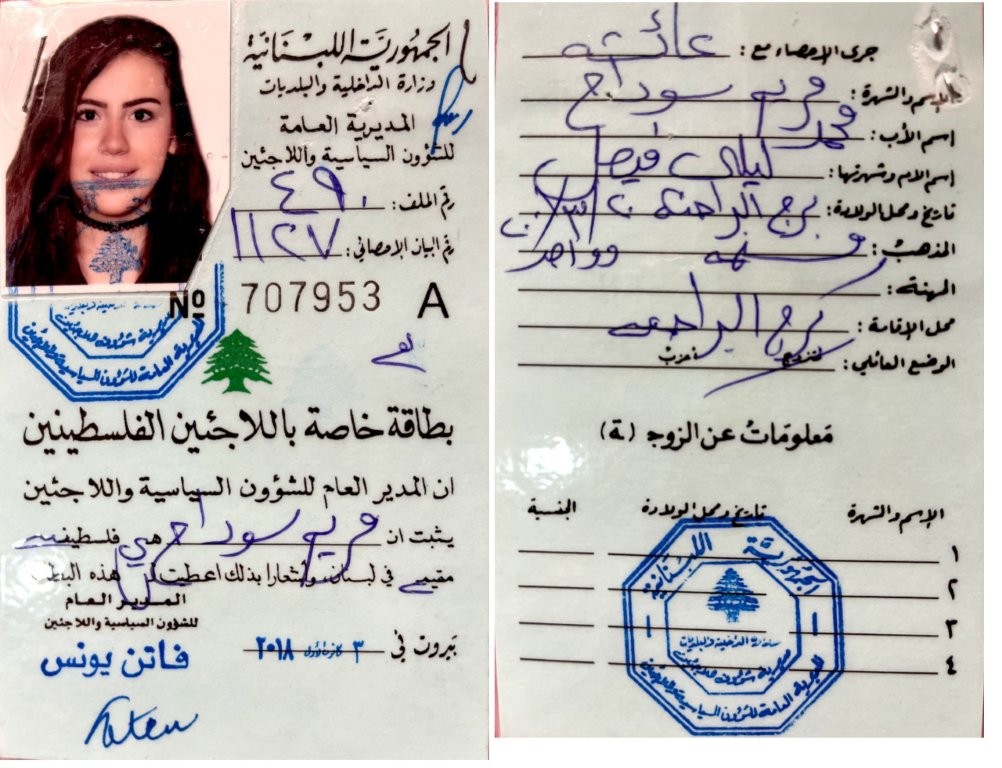 الجمهورية اللبنانية
وزارة الداخلية والبلديات
المديرية العامة
للشؤون السياسية واللاجئين
رقم الملف: ٤٩٠
رقم البيان الاحصائي: ١١٢٧
Nº 707953 A
بطاقة خاصة باللاجئين الفلسطينيين
ان المدير العام للشؤون السياسية واللاجئين
يثبت ان مريم سوداح هي فلسطينية
مقيمة في لبنان، واشعارا بذلك اعطيت لـ هذه
المدير العام
للشؤون السياسية واللاجئين
فاتن يونس
بيروت في ٣ كانون الاول ٢٠١٨
Faten
جرى الاحصاء مع: عائشة
الاسم والشهرة: مريم سوداح
اسم الأب: محمد
اسم الام وشهرتها: ليلى فيصل
تاريخ ومحل الولادة: برج البراجنة
المذهب:
المهنة:
محل الإقامة: برج البراجنة
الوضع العائلي: متزوج عزب
معلومات عن الزوج (ة)
الإسم والشهرة تاريخ ومحل الولادة الجنسية
١
٢
٣
٤
الجمهورية اللبنانية
المديرية العامة للشؤون السياسية واللاجئين